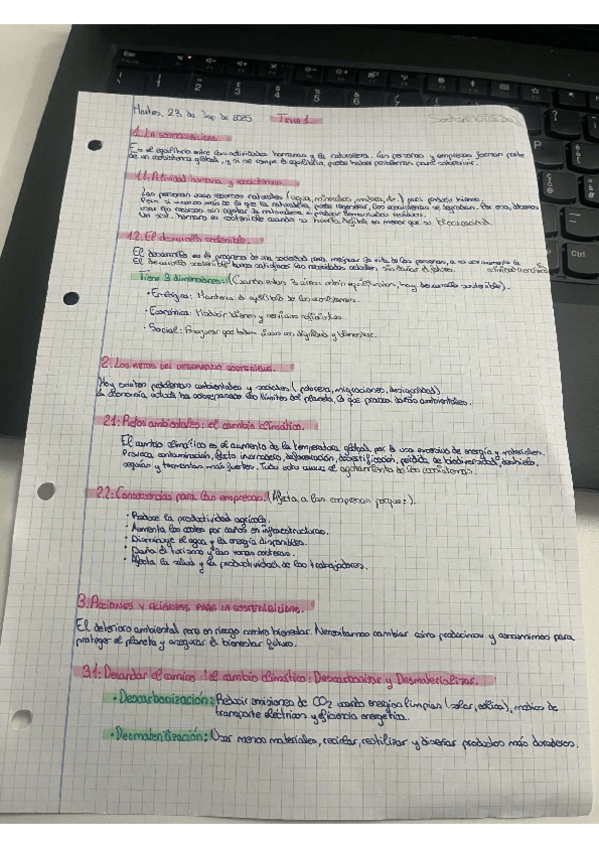 Martes, 23 de Sep de 2025 Tema 1.
1. La sostenibilidad.
Es el equilibrio entre las actividades humanas y la naturaleza. Las personas y empresas forman parte
de un ecosistema global, y si se rompe el equilibrio, puede haber problemas para sobrevivir.
1.1. Actividad humana y ecosistemas.
Las personas usan recursos naturales (agua, minerales, madera, etc.) para producir bienes.
Pero si usamos más de lo que la naturaleza puede regenerar, los ecosistemas se degradan. Por eso, debemos
usar los recursos sin agotar la naturaleza ni producir demasiados residuos.
humano es sostenible cuando su huella ecológica es menor que su biocapacidad.
1.2. El desarrollo sostenible.
El desarrollo es el progreso de una sociedad para mejorar la vida de las personas,
El desarrollo sostenible busca satisfacer las necesidades actuales sin dañar el futuro.
Tiene 3 dimensiones: (Cuando estas 3 áreas están equilibradas, hay desarrollo sostenible).
· Ecológica: Mantener el equilibrio de los ecosistemas.
· Económica: Producir bienes y servicios suficientes.
· Social: Asegurar que todos vivan con dignidad y bienestar.
2. Los retos del desarrollo sostenible.
Hoy existen problemas ambientales y sociales (pobreza, migraciones, desigualdad)
La economía actual ha sobrepasado los límites del planeta, lo que provoca daños ambientales.
2.1: Retos ambientales: el cambio climático.
El cambio climático es el aumento de la temperatura global por el uso excesivo de energía y materiales.
Provoca contaminación, efecto invernadero, deforestación, desertificación, pérdida de biodiversidad, deshielo,
sequías y tormentas más fuertes. Todo esto causa el agotamiento de los ecosistemas.
2.2: Consecuencias para las empresas. (Afecta a las empresas porque:).
· Reduce la productividad agrícola.
· Aumenta los costes por daños en infraestructuras.
· Disminuye el agua y la energía disponibles.
· Daña el turismo y las zonas costeras.
· Afecta la salud y la productividad de los trabajadores.
3. Acciones y alianzas para la sostenibilidad.
El deterioro ambiental pone en riesgo nuestro bienestar. Necesitamos cambiar cómo producimos y consumimos para
proteger el planeta y asegurar el bienestar futuro.
3.1: Desandar el camino del cambio climático: Descarbonizar y Desmaterializar.
· Descarbonización: Reducir emisiones de CO2 usando energías limpias (solar, eólica), medios de
transporte eléctricos y eficiencia energética.
· Desmaterialización: Usar menos materiales, reciclar, reutilizar y diseñar productos más duraderos.